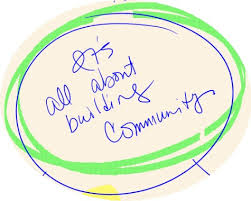 It's
all about
building
Community